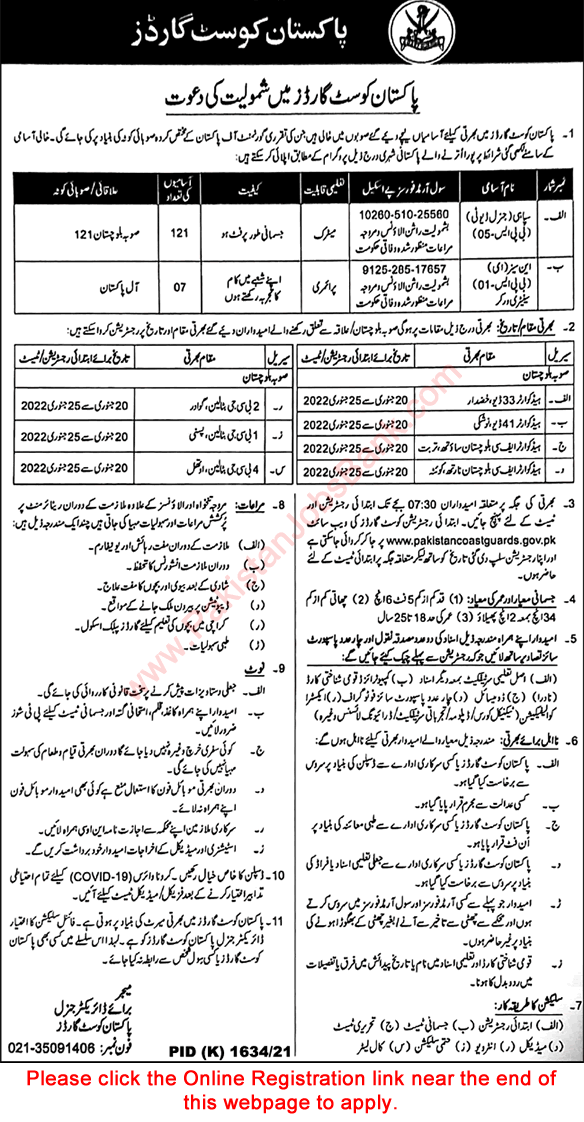 پاکستان کوسٹ گارڈز
پاکستان کوسٹ گارڈز میں شمولیت کی دعوت
1- پاکستان کوسٹ گارڈز میں بھرتی کیلئے آسامیاں نیچے دیے گئے صوبوں میں خالی ہیں جن کی تقرری گورنمنٹ آف پاکستان کے مختص کردہ صوبائی کوٹہ کی بنیاد پر کی جائے گی۔ خالی آسامی
کے سامنے لکھی گئی شرائط پر پورا اترنے والے پاکستانی شہری درج ذیل پروگرام کے مطابق اپلائی کر سکتے ہیں:
نمبر شمار | نام آسامی | سول آرمڈ فورسز پے اسکیل | تعلیمی قابلیت | کیفیت | آسامیوں کی تعداد | علاقائی / صوبائی کوٹہ
الف۔ | سپاہی (جنرل ڈیوٹی) (بی پی ایس-05) | 10260-510-25560 بشمولیت راشن الاؤنس و مروجہ مراعات منظور شدہ وفاقی حکومت | میٹرک | جسمانی طور پر فٹ ہو | 121 | صوبہ بلوچستان 121
ب۔ | این سیز (ای) (بی پی ایس-01) سینٹری ورکر | 9125-285-17657 بشمولیت راشن الاؤنس و مروجہ مراعات منظور شدہ وفاقی حکومت | پرائمری | اپنے شعبے میں کام کا تجربہ رکھتے ہوں | 07 | آل پاکستان
2- بھرتی مقام / تاریخ: بھرتی درج ذیل مقامات پر ہوگی صوبہ بلوچستان / علاقہ سے تعلق رکھنے والے امیدواران دیے گئے بھرتی مقام اور تاریخ پر رجسٹریشن کروا سکتے ہیں:
سیریل | مقام بھرتی | تاریخ برائے ابتدائی رجسٹریشن / ٹیسٹ
صوبہ بلوچستان
الف۔ | ہیڈ کوارٹر 33 ڈیو، خضدار | 20 جنوری سے 25 جنوری 2022
ب۔ | ہیڈ کوارٹر 41 ڈیو، نوشکی | 20 جنوری سے 25 جنوری 2022
ج۔ | ہیڈ کوارٹر ایف سی بلوچستان ساؤتھ، تربت | 20 جنوری سے 25 جنوری 2022
د۔ | ہیڈ کوارٹر ایف سی بلوچستان نارتھ، کوئٹہ | 20 جنوری سے 25 جنوری 2022
سیریل | مقام بھرتی | تاریخ برائے ابتدائی رجسٹریشن / ٹیسٹ
صوبہ بلوچستان
ر۔ | 2 پی سی جی بٹالین، گوادر | 20 جنوری سے 25 جنوری 2022
ز۔ | 1 پی سی جی بٹالین، پسنی | 20 جنوری سے 25 جنوری 2022
س۔ | 4 پی سی جی بٹالین، اوتھل | 20 جنوری سے 25 جنوری 2022
3- بھرتی کی جگہ پر متعلقہ امیدواران 07:30 بجے تک ابتدائی رجسٹریشن اور
ٹیسٹ کے لئے پہنچ جائیں۔ ابتدائی رجسٹریشن کوسٹ گارڈز کی ویب سائٹ
www.pakistancoastguards.gov.pk پر جا کر کرائی جا سکتی ہے
اور اپنا رجسٹریشن سلپ دی گئی تاریخ کو ساتھ لیکر متعلقہ جگہ پر ابتدائی ٹیسٹ کے لئے
حاضر ہوں۔
4- جسمانی معیار اور عمر کی معیاد: (1) قد کم از کم 5 فٹ 6 انچ (2) چھاتی کم از کم
34 انچ بمعہ 2 انچ پھیلاؤ (3) عمر کی حد 18 تا 25 سال
5- امیدوار اپنے ہمراہ مندرجہ ذیل اسناد کی دو عدد مصدقہ نقول اور چار عدد پاسپورٹ
سائز تصاویر ساتھ لائیں جو کہ رجسٹریشن سے پہلے چیک کئے جائیں گے:
(الف) اصل تعلیمی سرٹیفکیٹ بمعہ دیگر اسناد (ب) کمپیوٹرائزڈ قومی شناختی کارڈ
(نادرا) (ج) ڈومیسائل (د) چار عدد پاسپورٹ سائز فوٹوگراف (ر) ایکسٹرا
کوالیفکیشن (ٹیکنیکل کورس / ڈپلومہ / تجرباتی سرٹیفکیٹ / ڈرائیونگ لائسنس وغیرہ)
6- نااہل برائے بھرتی: مندرجہ ذیل معیار والے امیدوار بھرتی کیلئے نااہل ہوں گے:
الف۔ پاکستان کوسٹ گارڈز یا کسی سرکاری ادارے سے ڈسپلن کی بنیاد پر سروس
سے برخاست کیا گیا ہو۔
ب۔ کسی عدالت سے مجرم قرار پایا گیا ہو۔
ج۔ پاکستان کوسٹ گارڈز یا کسی سرکاری ادارے سے طبی معائنہ کی بنیاد پر
ان فٹ قرار پایا ہو۔
د۔ پاکستان کوسٹ گارڈز یا کسی سرکاری ادارے سے جعلی تعلیمی اسناد یا فراڈ کی
بنیاد پر سروس سے برخاست کیا گیا ہو۔
ر۔ امیدوار جو پہلے سے کسی آرمڈ فورسز اور سول آرمڈ فورسز میں سروس کرتے
ہوں اور محکمے سے چھٹی سے تاخیر سے آنے / بغیر چھٹی کے بھگوڑا ہونے کی
بنیاد پر غیر حاضر ہوں۔
ز۔ قومی شناختی کارڈ اور تعلیمی اسناد میں نام یا تاریخ پیدائش میں فرق یا تفصیلات
میں ردوبدل کا ہونا۔
7- سلیکشن کا طریقہ کار:
(الف) ابتدائی رجسٹریشن (ب) جسمانی ٹیسٹ (ج) تحریری ٹیسٹ
(د) میڈیکل (ر) انٹرویو (ز) حتمی سلیکشن (س) کال لیٹر
8- مراعات: مروجہ تنخواہ اور الاؤنسز کے علاوہ ملازمت کے دوران ریٹائرمنٹ پر
پرکشش مراعات اور سہولیات مہیا کی جاتی ہیں چند ایک مندرجہ ذیل ہیں:
(الف) ملازمت کے دوران مفت رہائش اور یونیفارم۔
(ب) دوران ملازمت انشورنس کا تحفظ۔
(ج) شادی کے بعد بیوی اور بچوں کا مفت علاج۔
(د) ڈیپوٹیشن پر بیرون ملک جانے کے مواقع۔
(ر) کراچی میں بچوں کی تعلیم کیلئے کوسٹ گارڈز پبلک اسکول۔
(ز) طبی سہولیات۔
9- نوٹ
الف۔ جعلی دستاویزات پیش کرنے پر سخت قانونی کارروائی کی جائے گی۔
ب۔ امیدوار اپنے ہمراہ کاغذ، قلم، امتحانی گتہ اور جسمانی ٹیسٹ کیلئے پی ٹی شوز
ضرور لائیں۔
ج۔ کوئی سفری خرچ وغیرہ نہیں دیا جائے گا دوران بھرتی قیام و طعام کی سہولت
مہیا نہیں کی جائے گی۔
د۔ دوران بھرتی موبائل فون کا استعمال منع ہے کوئی بھی امیدوار موبائل فون
اپنے ہمراہ نہ لائے۔
ر۔ سرکاری ملازمین اپنے محکمہ سے اجازت نامہ این او سی ہمراہ لائیں۔
ز۔ اسٹیشنری اور میڈیکل کے اخراجات امیدوار خود برداشت کریں گے۔
10- ڈسپلن کا خاص خیال رکھیں۔ کرونا وائرس (COVID-19) کیلئے تمام احتیاطی
تدابیر اختیار کرنے کے بعد فزیکل / میڈیکل ٹیسٹ کیلئے آئیں۔
11- پاکستان کوسٹ گارڈز میں بھرتی میرٹ کی بنیاد پر ہوتی ہے۔ فائنل سلیکشن کا اختیار
ڈائریکٹر جنرل پاکستان کوسٹ گارڈز کو ہے۔ لہذا اس سلسلے میں کسی بھی پاکستان
کوسٹ گارڈز یا کسی سول شخص سے رابطہ نہ کیا جائے۔
میجر
برائے ڈائریکٹر جنرل
پاکستان کوسٹ گارڈز
فون نمبر: 021-35091406
PID (K) 1634/21
www.PakistanJobsBank.com
Please click the Online Registration link near the end of
this webpage to apply.